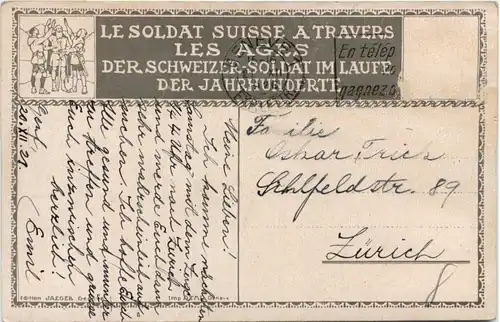 LE SOLDAT SUISSE A TRAVERS
LES AGES
DER SCHWEIZER-SOLDAT IM LAUFE
DER JAHRHUNDERTE
En télép
gagnez
Genf,
20. XII. 29.
Meine Lieben!
Ich komme nächsten
Samstag mit dem Zuge
Uhr nach Zürich
und werde Euch dann
wahrscheinlich auf-
suchen. Ich hoffe Euch
Alle gesund und munter
zu treffen und grüsse
Euch inzwischen
herzlich!
Emil
Familie
Oskar Frich
Sihlfeldstr. 89
Zürich
Edition JAEGER
Imp